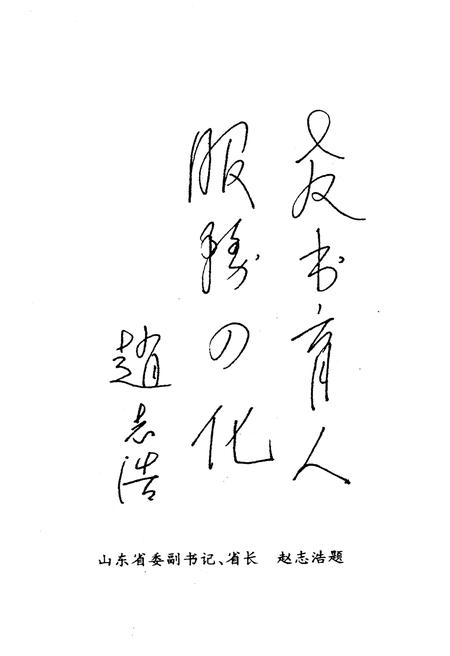 教书育人
服務四化
趙志浩
山东省委副书记、省长　赵志浩题